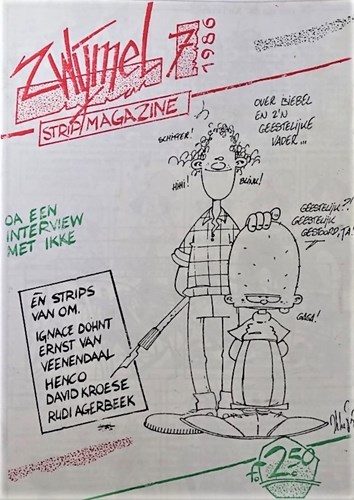 Zwijmel 7
1986
STRIP/MAGAZINE
SCHITTER!
OVER BIEBEL
EN Z'N
GEESTELIJKE
VADER...
HIHI!
BLINK!
OA EEN
INTERVIEW
MET IKKE
GEESTELIJK?!
GEESTELIJK
GESTOORD, JA!
GAGA!
EN STRIPS
VAN OM.
IGNACE DOHNT
ERNST VAN
VEENENDAAL
HENCO
DAVID KROESE
RUDI AGERBEEK
f. 2.50